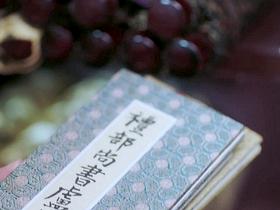 禮部尚書盧